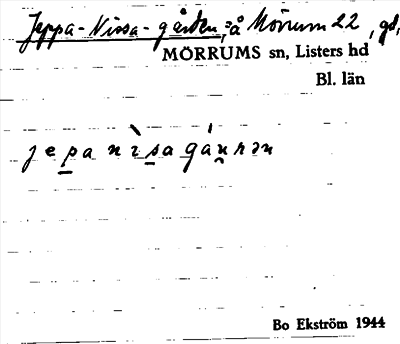 Jeppa-Nissa-gården, =å Mörrum 22, gd.
MÖRRUMS sn, Listers hd
Bl. län
jepa nìsa gánnən
Bo Ekström 1944